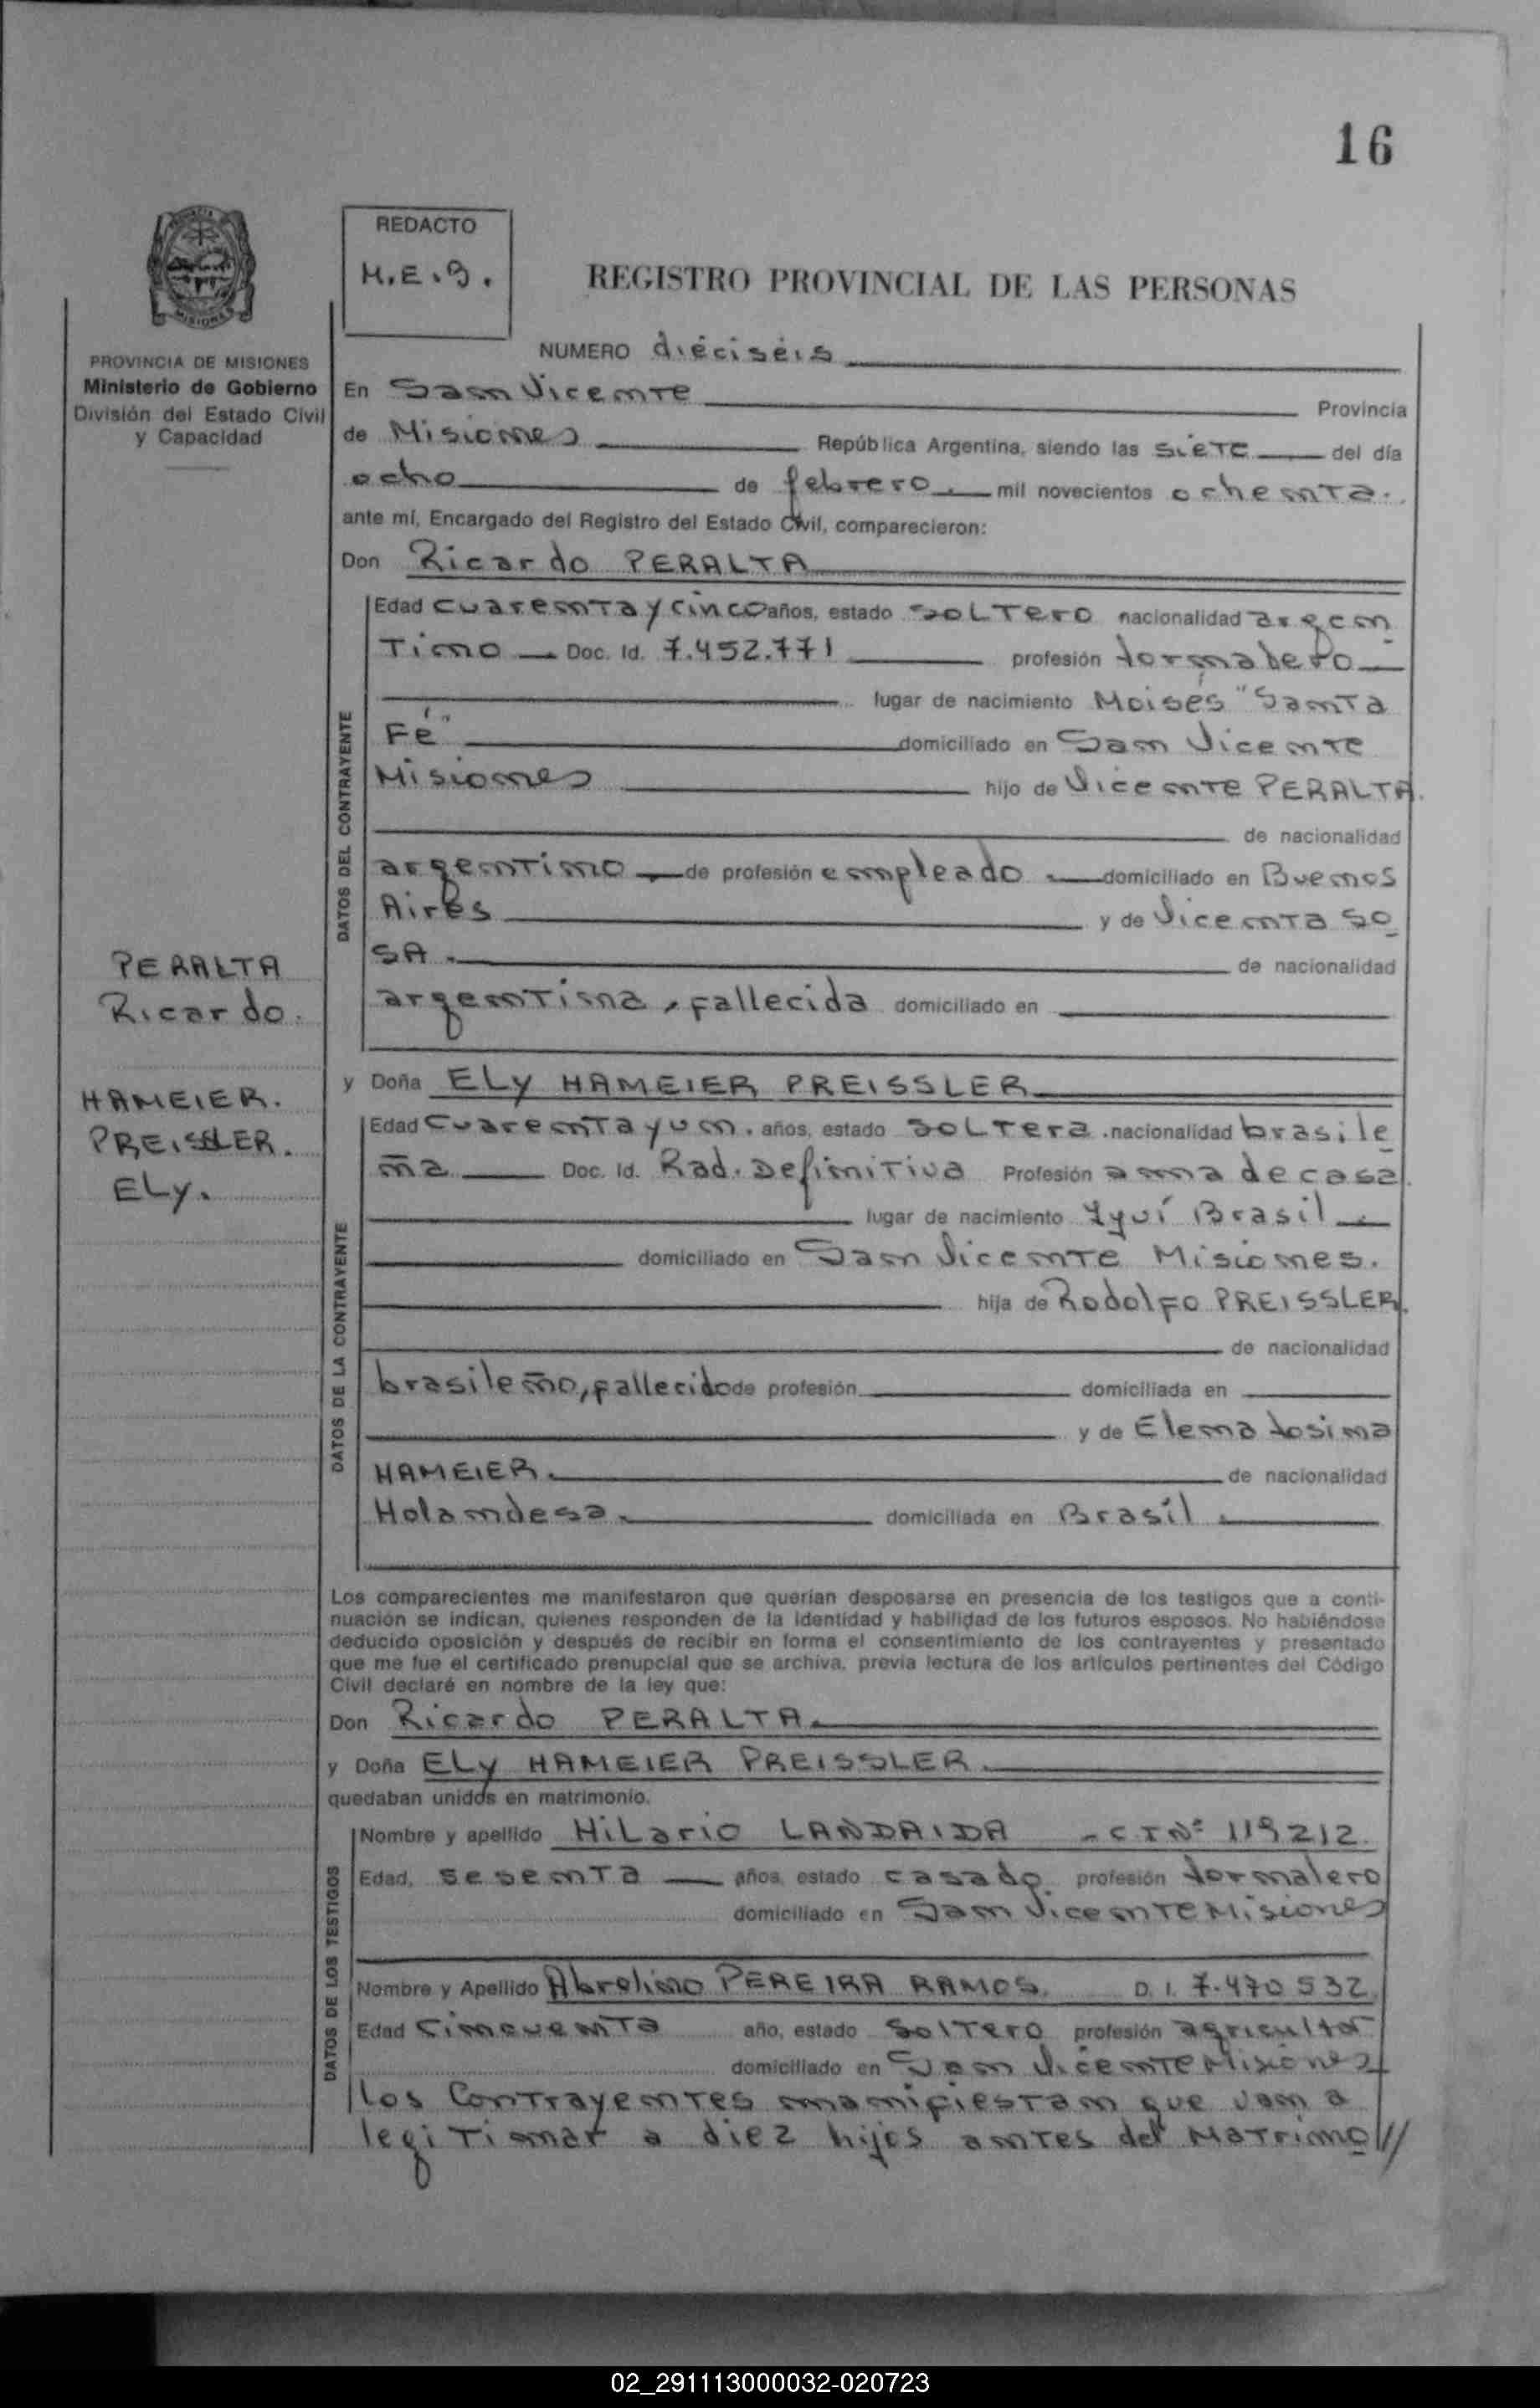 16
REDACTO
M.E.B.
REGISTRO PROVINCIAL DE LAS PERSONAS
PROVINCIA DE MISIONES
Ministerio de Gobierno
División del Estado Civil
y Capacidad
NUMERO dieciséis
En San Vicente Provincia
de Misiones República Argentina, siendo las siete del día
ocho de febrero. mil novecientos ochenta.
ante mí, Encargado del Registro del Estado Civil, comparecieron:
Don Ricardo PERALTA
DATOS DEL CONTRAYENTE
Edad cuarenta y cinco años, estado soltero nacionalidad argen
tino Doc. Id. 7.452.771 profesión Jornalero
lugar de nacimiento Moisés "Santa
Fé" domiciliado en San Vicente
Misiones hijo de Vicente PERALTA.
de nacionalidad
argentino de profesión empleado. domiciliado en Buenos
Aires y de Vicenta SO
SA. de nacionalidad
argentina, fallecida domiciliado en
PERALTA
Ricardo.
HAMEIER.
PREISSLER.
ELy.
y Doña ELy HAMEIER PREISSLER
DATOS DE LA CONTRAYENTE
Edad cuarenta y un. años, estado soltera. nacionalidad brasile
ña Doc. Id. Rad. Definitiva Profesión ama de casa.
lugar de nacimiento Yyuí Brasil
domiciliado en San Vicente Misiones.
hija de Rodolfo PREISSLER.
de nacionalidad
brasileño, fallecido de profesión domiciliada en
y de Elena Josina
HAMEIER. de nacionalidad
Holandesa. domiciliada en Brasíl.
Los comparecientes me manifestaron que querían desposarse en presencia de los testigos que a conti-
nuación se indican, quienes responden de la identidad y habilidad de los futuros esposos. No habiéndose
deducido oposición y después de recibir en forma el consentimiento de los contrayentes y presentado
que me fue el certificado prenupcial que se archiva, previa lectura de los artículos pertinentes del Código
Civil declaré en nombre de la ley que:
Don Ricardo PERALTA.
y Doña ELy HAMEIER PREISSLER.
quedaban unidos en matrimonio.
DATOS DE LOS TESTIGOS
Nombre y apellido Hilario LANDAIDA - C I Nº 119212.
Edad, sesenta años, estado casado. profesión Jornalero
domiciliado en San Vicente Misiones
Nombre y Apellido Abrelino PEREIRA RAMOS. D. I. 7.470 532.
Edad Cincuenta año, estado Soltero profesión agricultor
domiciliado en San Vicente Misiones
los Contrayentes manifiestan que van a
legitimar a diez hijos antes del Matrimo//
02_291113000032-020723